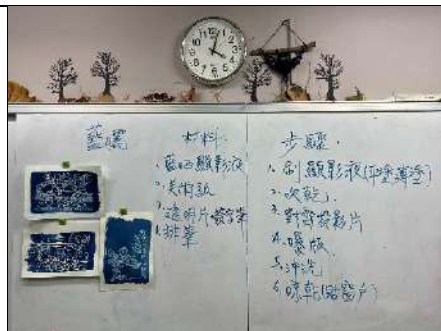 藍曬
材料:
1. 藍晒顯影液
2. 美術紙
4. 排筆
步驟:
1. 刷顯影液(平塗薄塗)
2. 吹乾
3. 對齊投影片
4. 曝版
5. 沖洗
6. 晾乾(貼窗戶)